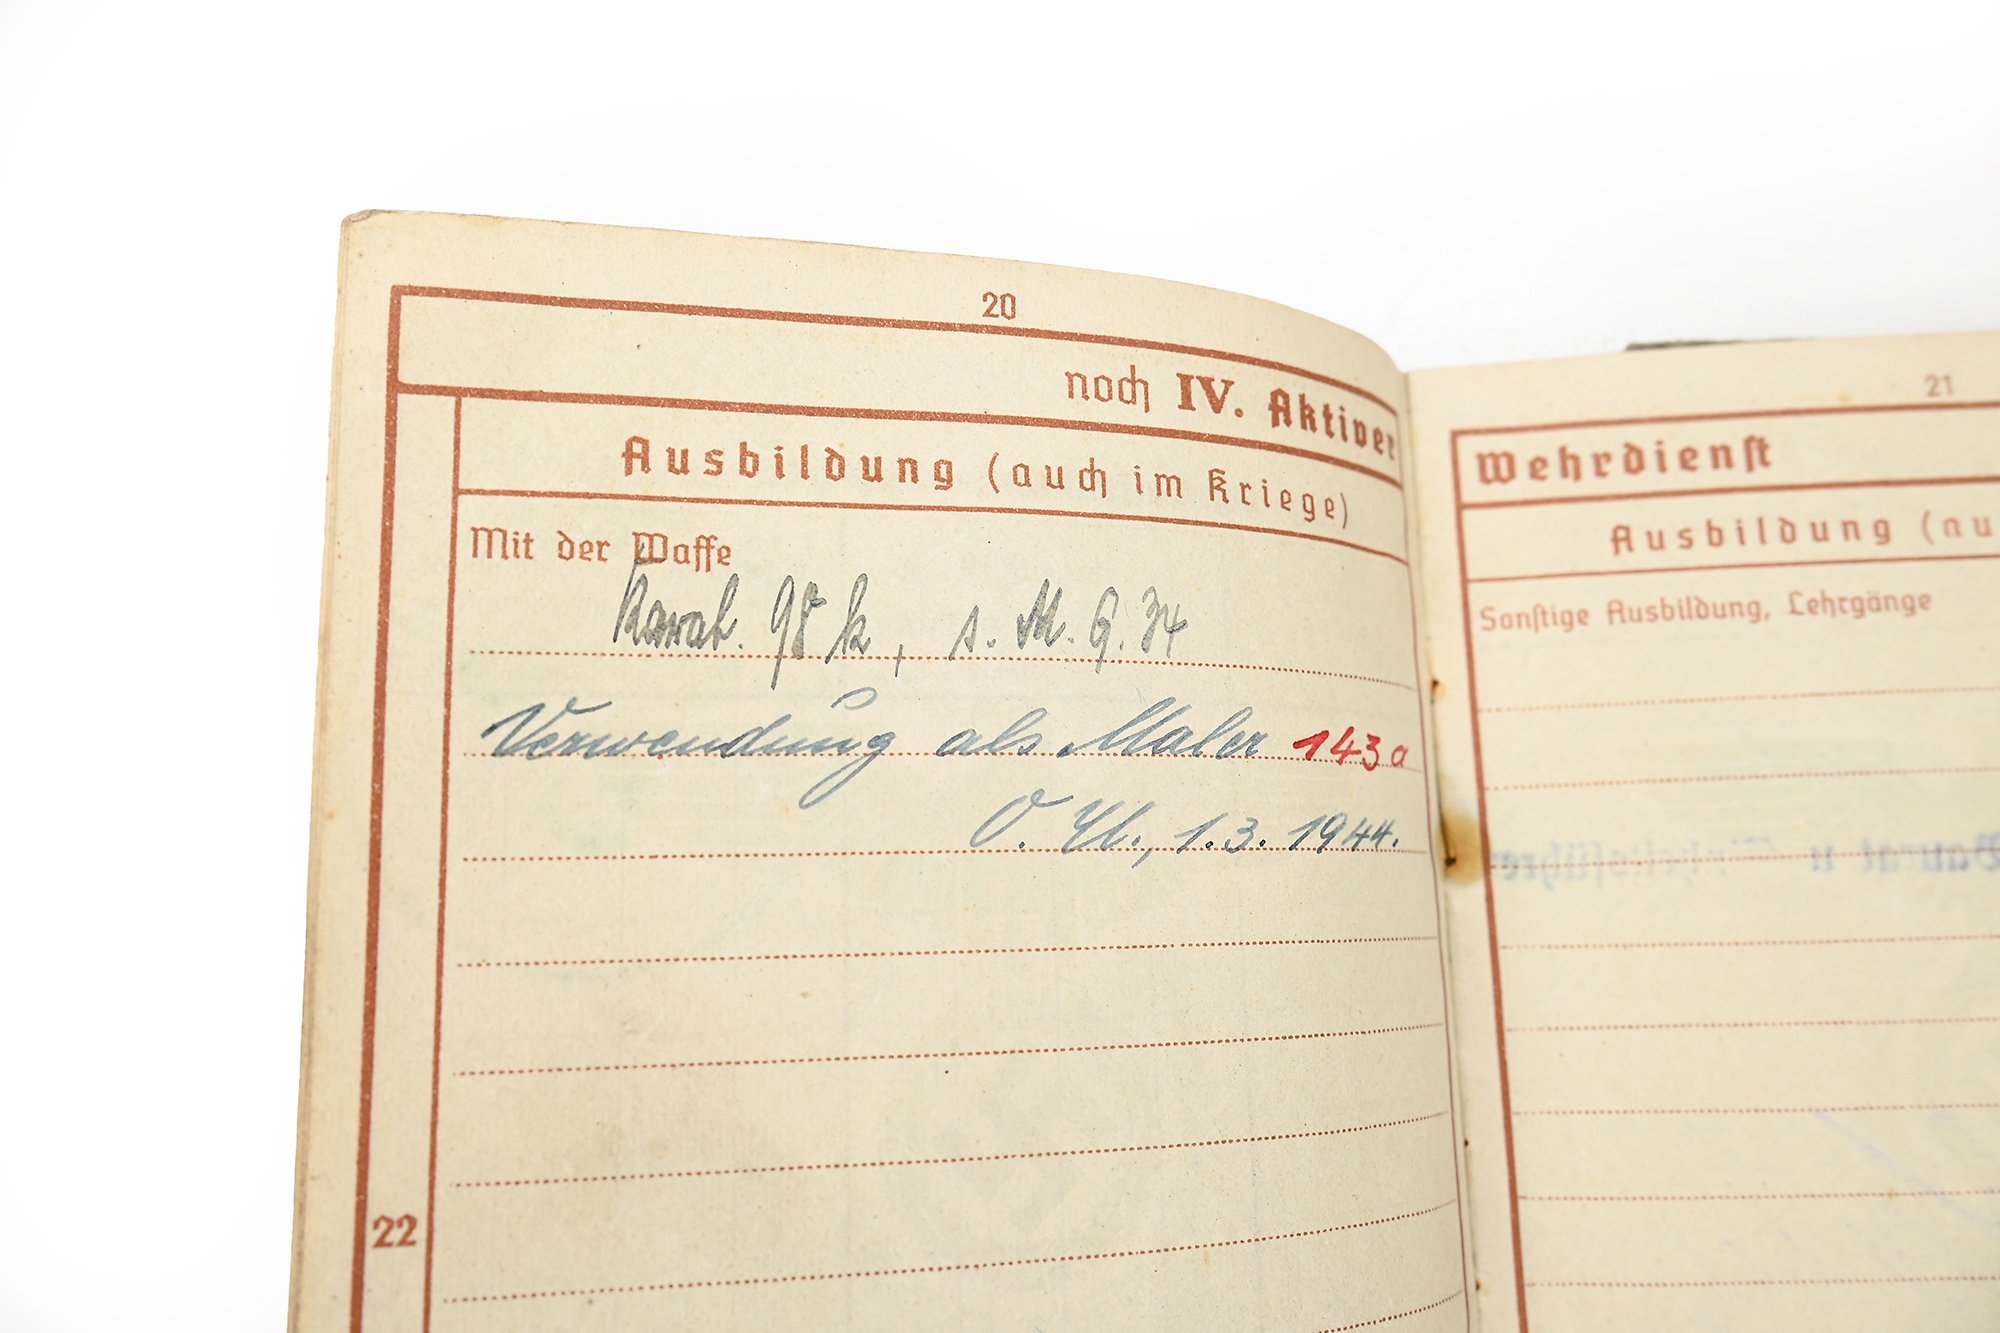 20
noch IV. Aktiver
Ausbildung (auch im Kriege)
Mit der Waffe
Karab. 98 k, s. M. G. 34
Verwendung als Maler 143 a
O. U., 1.3. 1944.
22
21
Wehrdienst
Ausbildung (nu
Sonstige Ausbildung, Lehrgänge